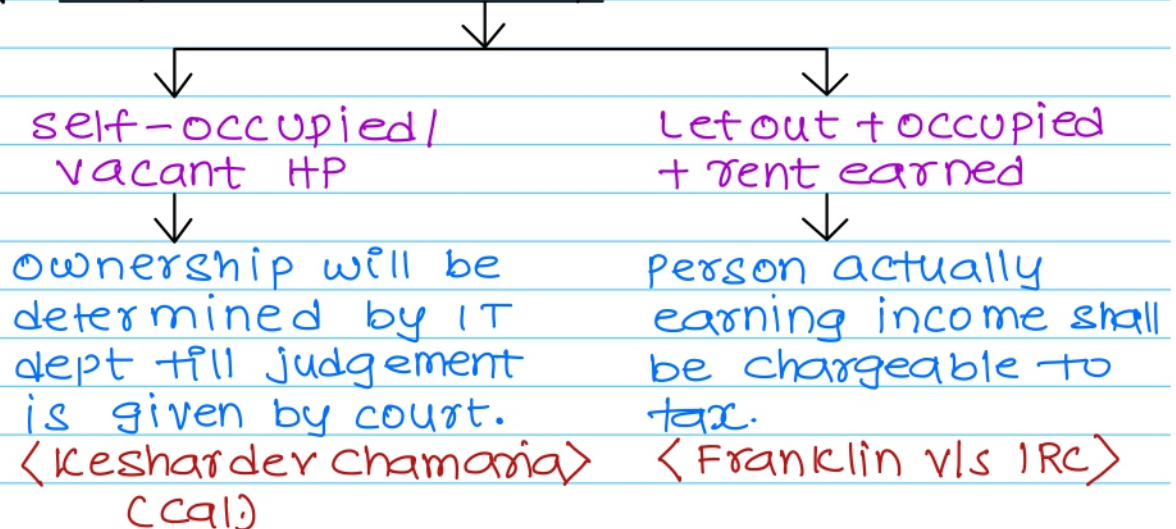 self-occupied/
vacant HP
ownership will be
determined by IT
dept till judgement
is given by court.
<Keshardev Chamaria>
(Cal.)
Let out + occupied
+ rent earned
Person actually
earning income shall
be chargeable to
tax.
<Franklin v/s IRC>